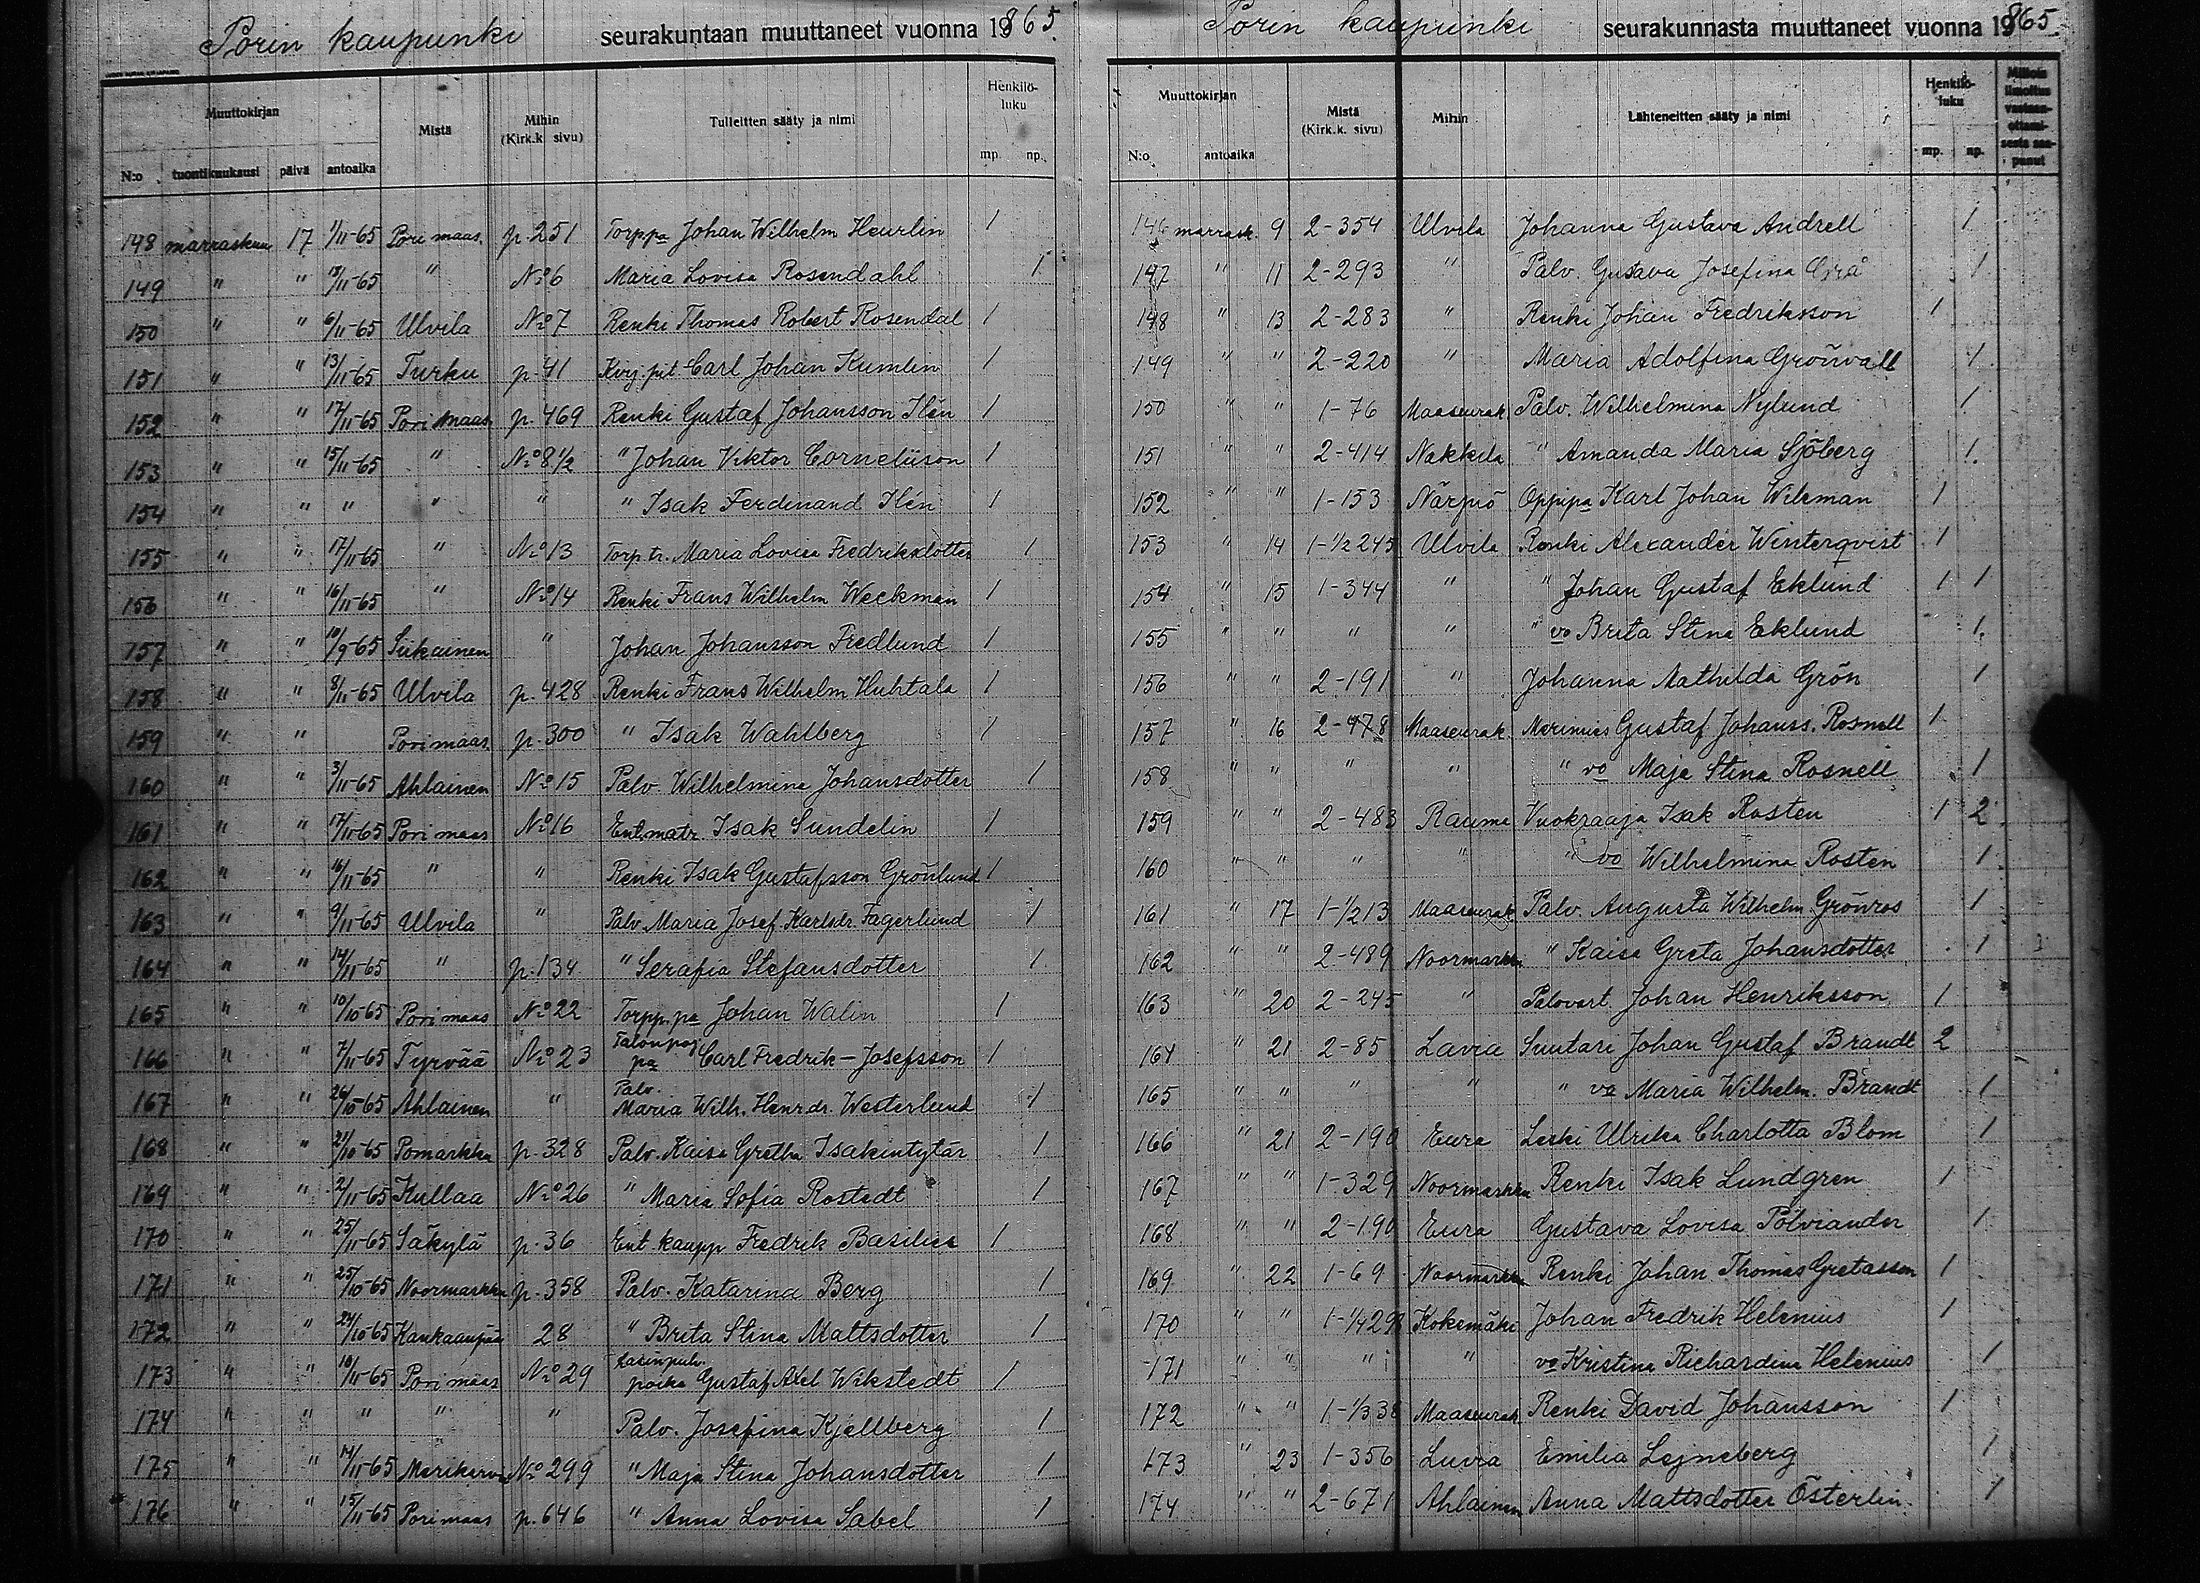 Porin kaupunki seurakuntaan muuttaneet vuonna 1865.
Muuttokirjan
N:o tuontikuukausi päivä antoaika Mistä Mihin (Kirk.k. sivu) Tulleitten sääty ja nimi Henkilö-luku mp. np.
148 marraskuu 17 1/11-65 Pori maas. p. 251 Torppa Johan Wilhelm Heurlin 1
149 " " 13/11-65 " No 6 Maria Lovisa Rosendahl 1
150 " " 6/11-65 Ulvila No 7 Renki Thomas Robert Rosendal 1
151 " " 13/11-65 Turku p. 41 Carl Johan Kumlin 1
152 " " 17/11-65 Pori maas. p. 469 Renki Gustaf Johansson Ilén 1
153 " " 15/11-65 " No 8 1/2 " Johan Viktor Corneliuson 1
154 " " " " " " Isak Ferdinand Ilén 1
155 " " 17/11-65 " No 13 Torp. tr. Maria Lovisa Fredriksdotter 1
156 " " 16/11-65 " No 14 Renki Frans Wilhelm Weckman 1
157 " " 10/9-65 Siikainen " Johan Johansson Fredlund 1
158 " " 8/11-65 Ulvila p. 428 Renki Frans Wilhelm Huhtala 1
159 " " Pori maas p. 300 " Isak Wahlberg 1
160 " " 3/11-65 Ahlainen No 15 Palv. Wilhelmina Johansdotter 1
161 " " 17/11-65 Pori maas No 16 Ent. matr. Isak Sundelin 1
162 " " 16/11-65 " " Renki Isak Gustafsson Grönlund 1
163 " " 9/11-65 Ulvila " Palv. Maria Josef. Karlsdr. Fagerlund 1
164 " " 14/11-65 " p. 134 " Serafia Stefansdotter 1
165 " " 10/10-65 Pori maas No 22 Torpp. pa Johan Walin 1
166 " " 7/11-65 Tyrvää No 23 Talonpoj. pa Carl Fredrik Josefsson 1
167 " " 26/10-65 Ahlainen " Palv. Maria Wilh. Henr.dr. Westerlund 1
168 " " 21/10-65 Pomarkku p. 328 Palv. Kaisa Gretha Isakintytär 1
169 " " 2/11-65 Kullaa No 26 " Maria Sofia Rostedt 1
170 " " 25/11-65 Säkylä p. 36 Ent. kaupp. Fredrik Basilier 1
171 " " 25/10-65 Noormarkku p. 358 Palv. Katarina Berg 1
172 " " 24/10-65 Kankaanpää 28 " Brita Stina Mattsdotter 1
173 " " 10/11-65 Pori maas No 29 poika Gustaf Axel Wikstedt 1
174 " " " " " Palv. Josefina Kjellberg 1
175 " " 14/11-65 Merikarvia No 299 " Maja Stina Johansdotter 1
176 " " 15/11-65 Pori maas p. 646 " Anna Lovisa Sabel 1
Porin kaupunki seurakunnasta muuttaneet vuonna 1865.
Muuttokirjan
N:o antoaika Mistä (Kirk.k. sivu) Mihin Lähteneitten sääty ja nimi Henkilö-luku mp. np. Milloin ilmoitus vastaan-ottami-sesta saa-punut
146 marrask. 9 2-354 Ulvila Johanna Gustava Andrell 1
147 " 11 2-293 " Palv. Gustava Josefina Grå 1
148 " 13 2-283 " Renki Johan Fredriksson 1
149 " " 2-220 " Maria Adolfina Grönvall 1
150 " " 1-76 Maaseurak. Palv. Wilhelmina Nylund 1
151 " " 2-414 Nakkila " Amanda Maria Sjöberg 1
152 " " 1-153 Närpiö Oppipa Karl Johan Wikman 1
153 " 14 1-1/2 245 Ulvila Renki Alexander Winterqvist 1
154 " 15 1-344 " " Johan Gustaf Eklund 1 1
155 " " " " " vo Brita Stina Eklund 1
156 " " 2-191 " Johanna Mathilda Grön 1
157 " 16 2-478 Maaseurak. Merimies Gustaf Johanss. Rosnell 1
158 " " " " " vo Maja Stina Rosnell 1
159 " " 2-483 Rauma Vuokraaja Isak Rosten 1 2
160 " " " " " vo Wilhelmina Rosten 1
161 " 17 1-1/2 13 Maaseurak. Palv. Augusta Wilhelm. Grönros 1
162 " " 2-489 Noormarkku " Kaisa Greta Johansdotter 1
163 " 20 2-245 " Palovart. Johan Henriksson 1
164 " 21 2-85 Lavia Suutari Johan Gustaf Brandt 2
165 " " " " " vo Maria Wilhelm. Brandt 1
166 " 21 2-190 Eura Leski Ulrika Charlotta Blom 1
167 " " 1-329 Noormarkku Renki Isak Lundgren 1
168 " " 2-190 Eura Gustava Lovisa Polviander 1
169 " 22 1-69 Noormarkku Renki Johan Thomas Gretasson 1
170 " " 1-1/4 298 Kokemäki Johan Fredrik Helenius 1
171 " " " " vo Kristina Richardina Helenius 1
172 " " 1-1/3 38 Maaseurak. Renki David Johansson 1
173 " 23 1-356 Luvia Emilia Lejneberg 1
174 " " 2-671 Ahlainen Anna Mattsdotter Österlin 1